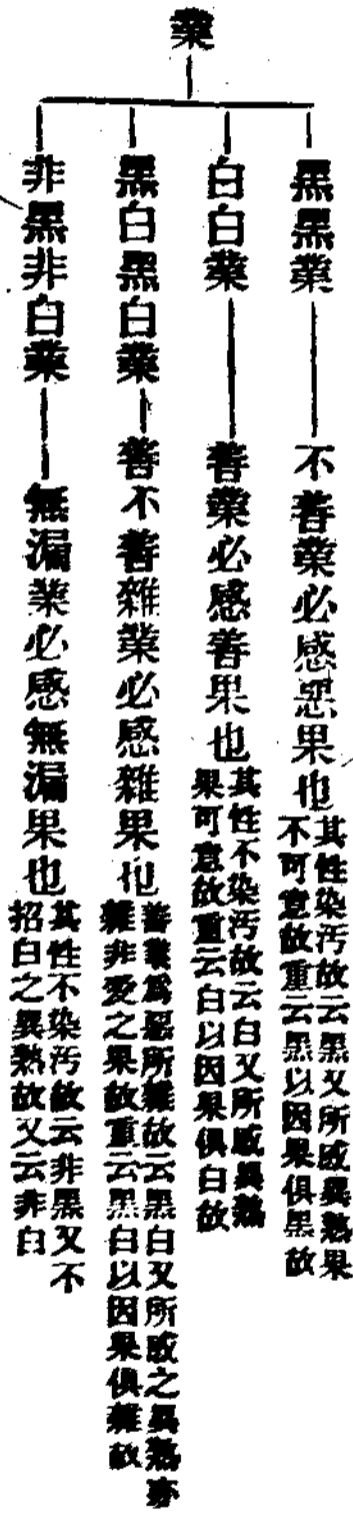 業
黑黑業
不善業必感惡果也
其性染汚故云黑又所感異熟果
不可意故重云黑以因果俱黑故
白白業
善業必感善果也
其性不染汚故云白又所感異熟
果可意故重云白以因果俱白故
黑白黑白業
善不善雜業必感雜果也
善業爲惡所雜故云黑白又所感之異熟亦
雜非愛之果故重云黑白以因果俱雜故
非黑非白業
無漏業必感無漏果也
其性不染汚故云非黑又不
招白之異熟故又云非白